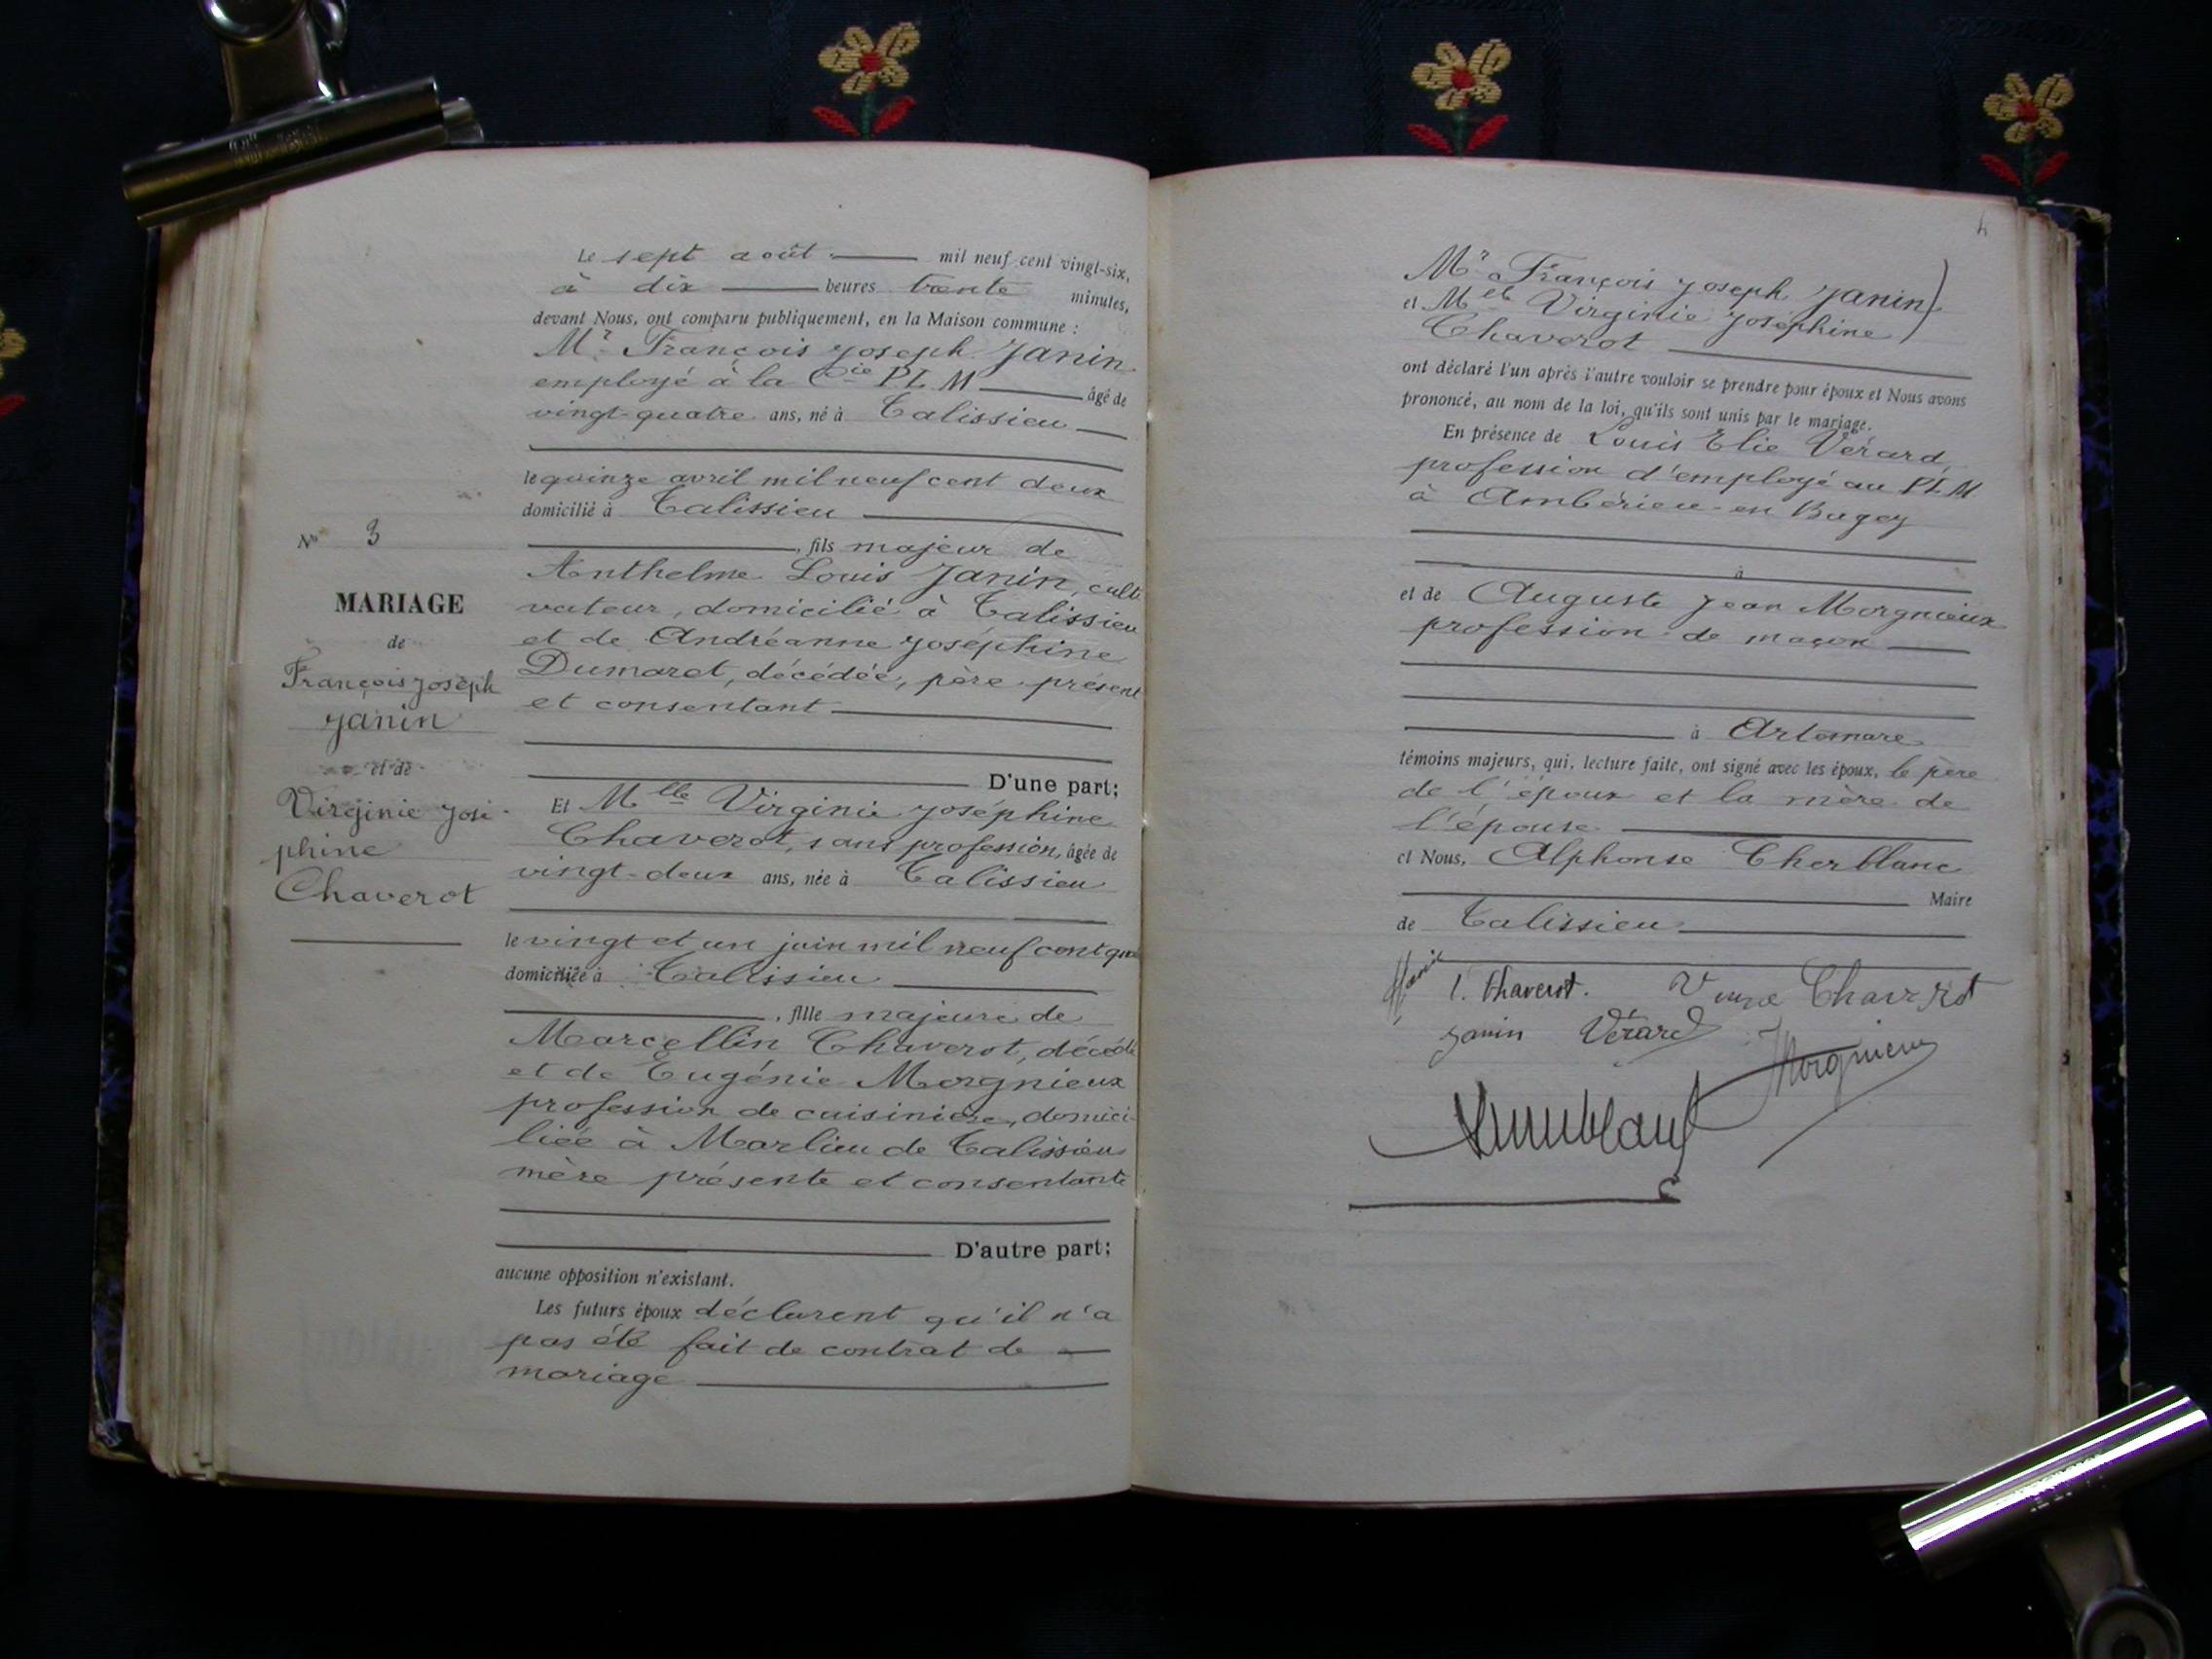 Le sept août mil neuf cent vingt-six,
à dix heures trente minutes,
devant Nous, ont comparu publiquement, en la Maison commune :
Mr François Joseph Janin
employé à la Cie PLM âgé de
vingt-quatre ans, né à Talissieu
le quinze avril mil neuf cent deux
domicilié à Talissieu
, fils majeur de
Anthelme Louis Janin, culti
vateur, domicilié à Talissieu
et de Andréanne Joséphine
Dumaret, décédée, père présent
et consentant
D'une part;
Et Mlle Virginie Joséphine
Chaverot, sans profession, âgée de
vingt-deux ans, née à Talissieu
le vingt et un juin mil neuf cent qua
domiciliée à Talissieu
, fille majeure de
Marcellin Chaverot, décédé
et de Eugénie Morgnieux
profession de cuisinière, domici-
liée à Marlieu de Talissieu
mère présente et consentante
D'autre part;
aucune opposition n'existant.
Les futurs époux déclarent qu'il n'a
pas été fait de contrat de
mariage
No 3
MARIAGE
de
François Joseph
Janin
et de
Virginie José-
phine
Chaverot
4
Mr François Joseph Janin
et Melle Virginie Joséphine
Chaverot
ont déclaré l'un après l'autre vouloir se prendre pour époux et Nous avons
prononcé, au nom de la loi, qu'ils sont unis par le mariage.
En présence de Louis Elie Vérard,
profession d'employé au PLM
à Ambérieu-en Bugey
à
et de Auguste Jean Morgnieux
profession de maçon
à Artemare
témoins majeurs, qui, lecture faite, ont signé avec les époux, le père
de l'époux et la mère de
l'épouse
et Nous, Alphonse Cherblanc
Maire
de Talissieu
Janin
V. Chaverot. Vve Chaverot
Janin Vérard
Morgnieux